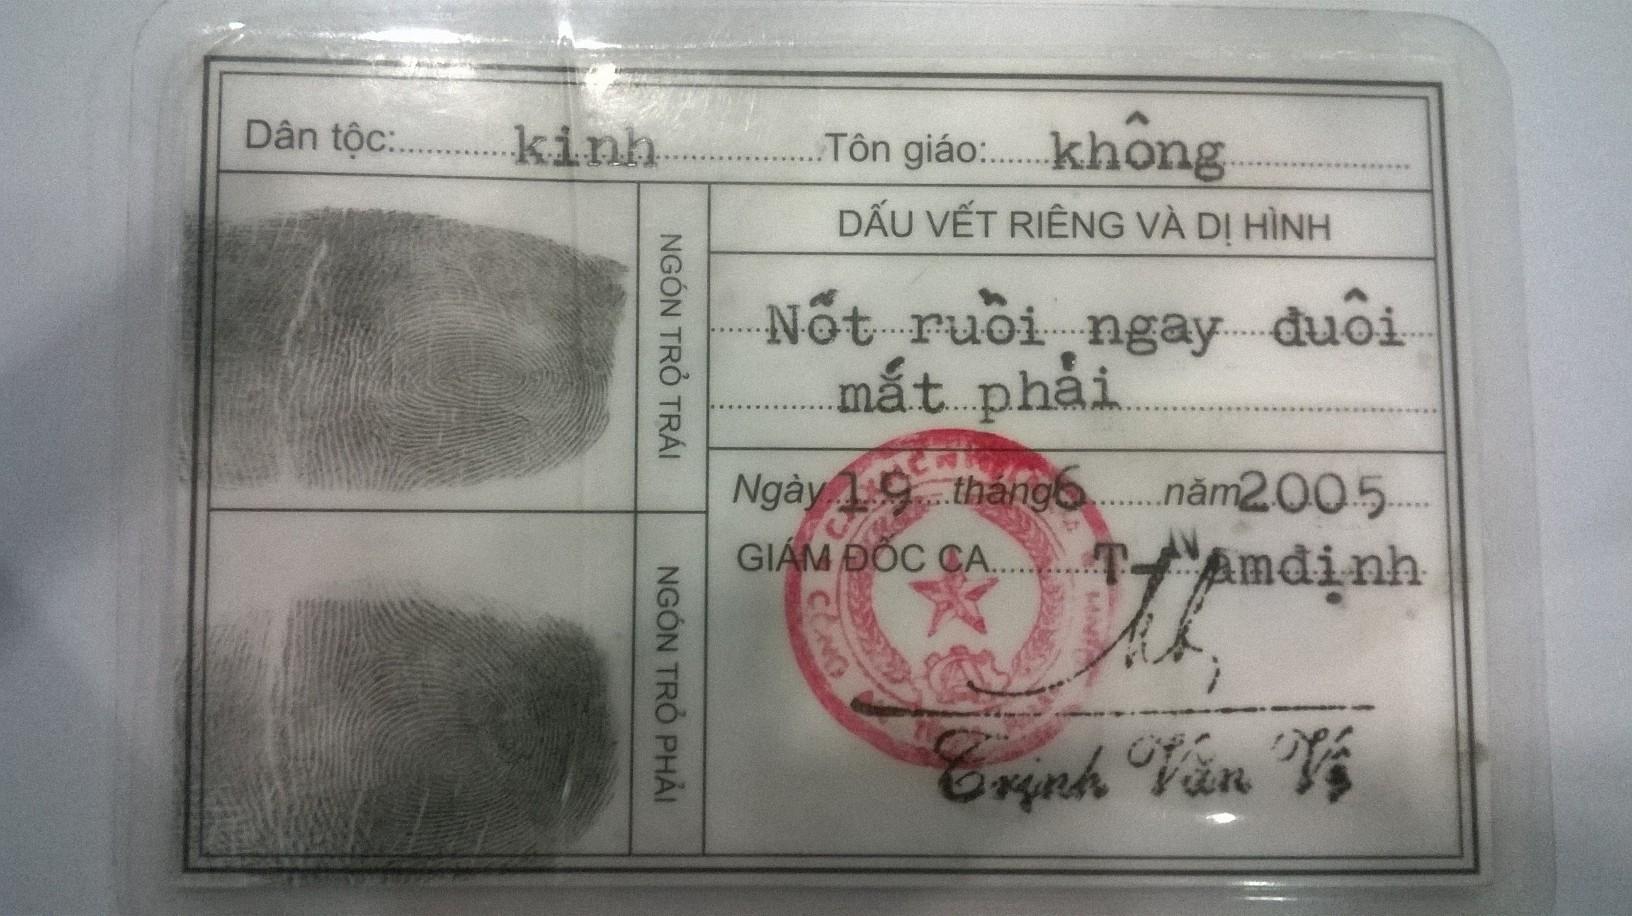 Dân tộc: kinh Tôn giáo: không
NGÓN TRỎ TRÁI
DẤU VẾT RIÊNG VÀ DỊ HÌNH
Nốt ruồi ngay đuôi
mắt phải
Ngày 19 tháng 6 năm 2005
GIÁM ĐỐC CA T-Namđịnh
NGÓN TRỎ PHẢI
CÔNG
Trịnh Văn Vị